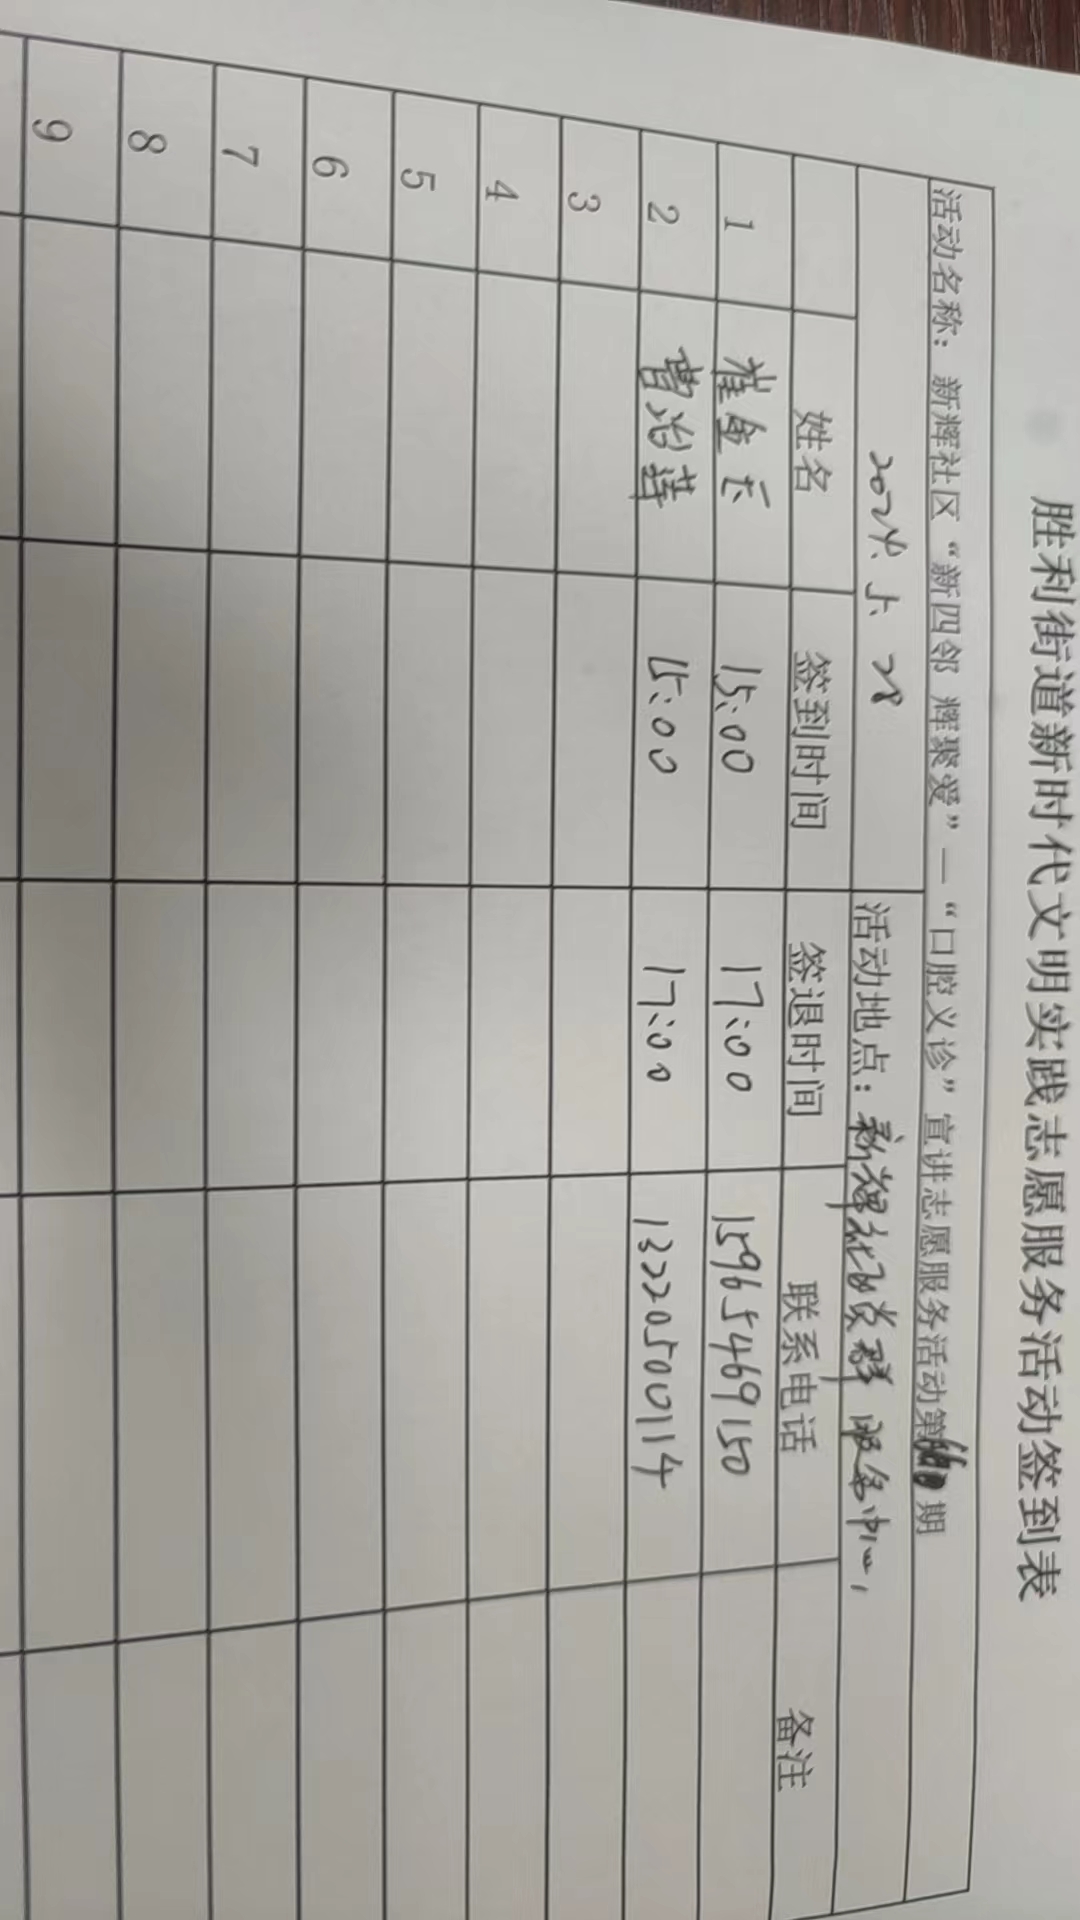 胜利街道新时代文明实践志愿服务活动签到表
活动名称：新辉社区“新四邻 辉聚爱”—“口腔义诊”宣讲志愿服务活动第 期
活动地点：新辉社区党群服务中心
姓名 签到时间 签退时间 联系电话 备注
1 崔 15:00 17:00 15965469150
2 曹 15:00 17:00 13220500114
3
4
5
6
7
8
9